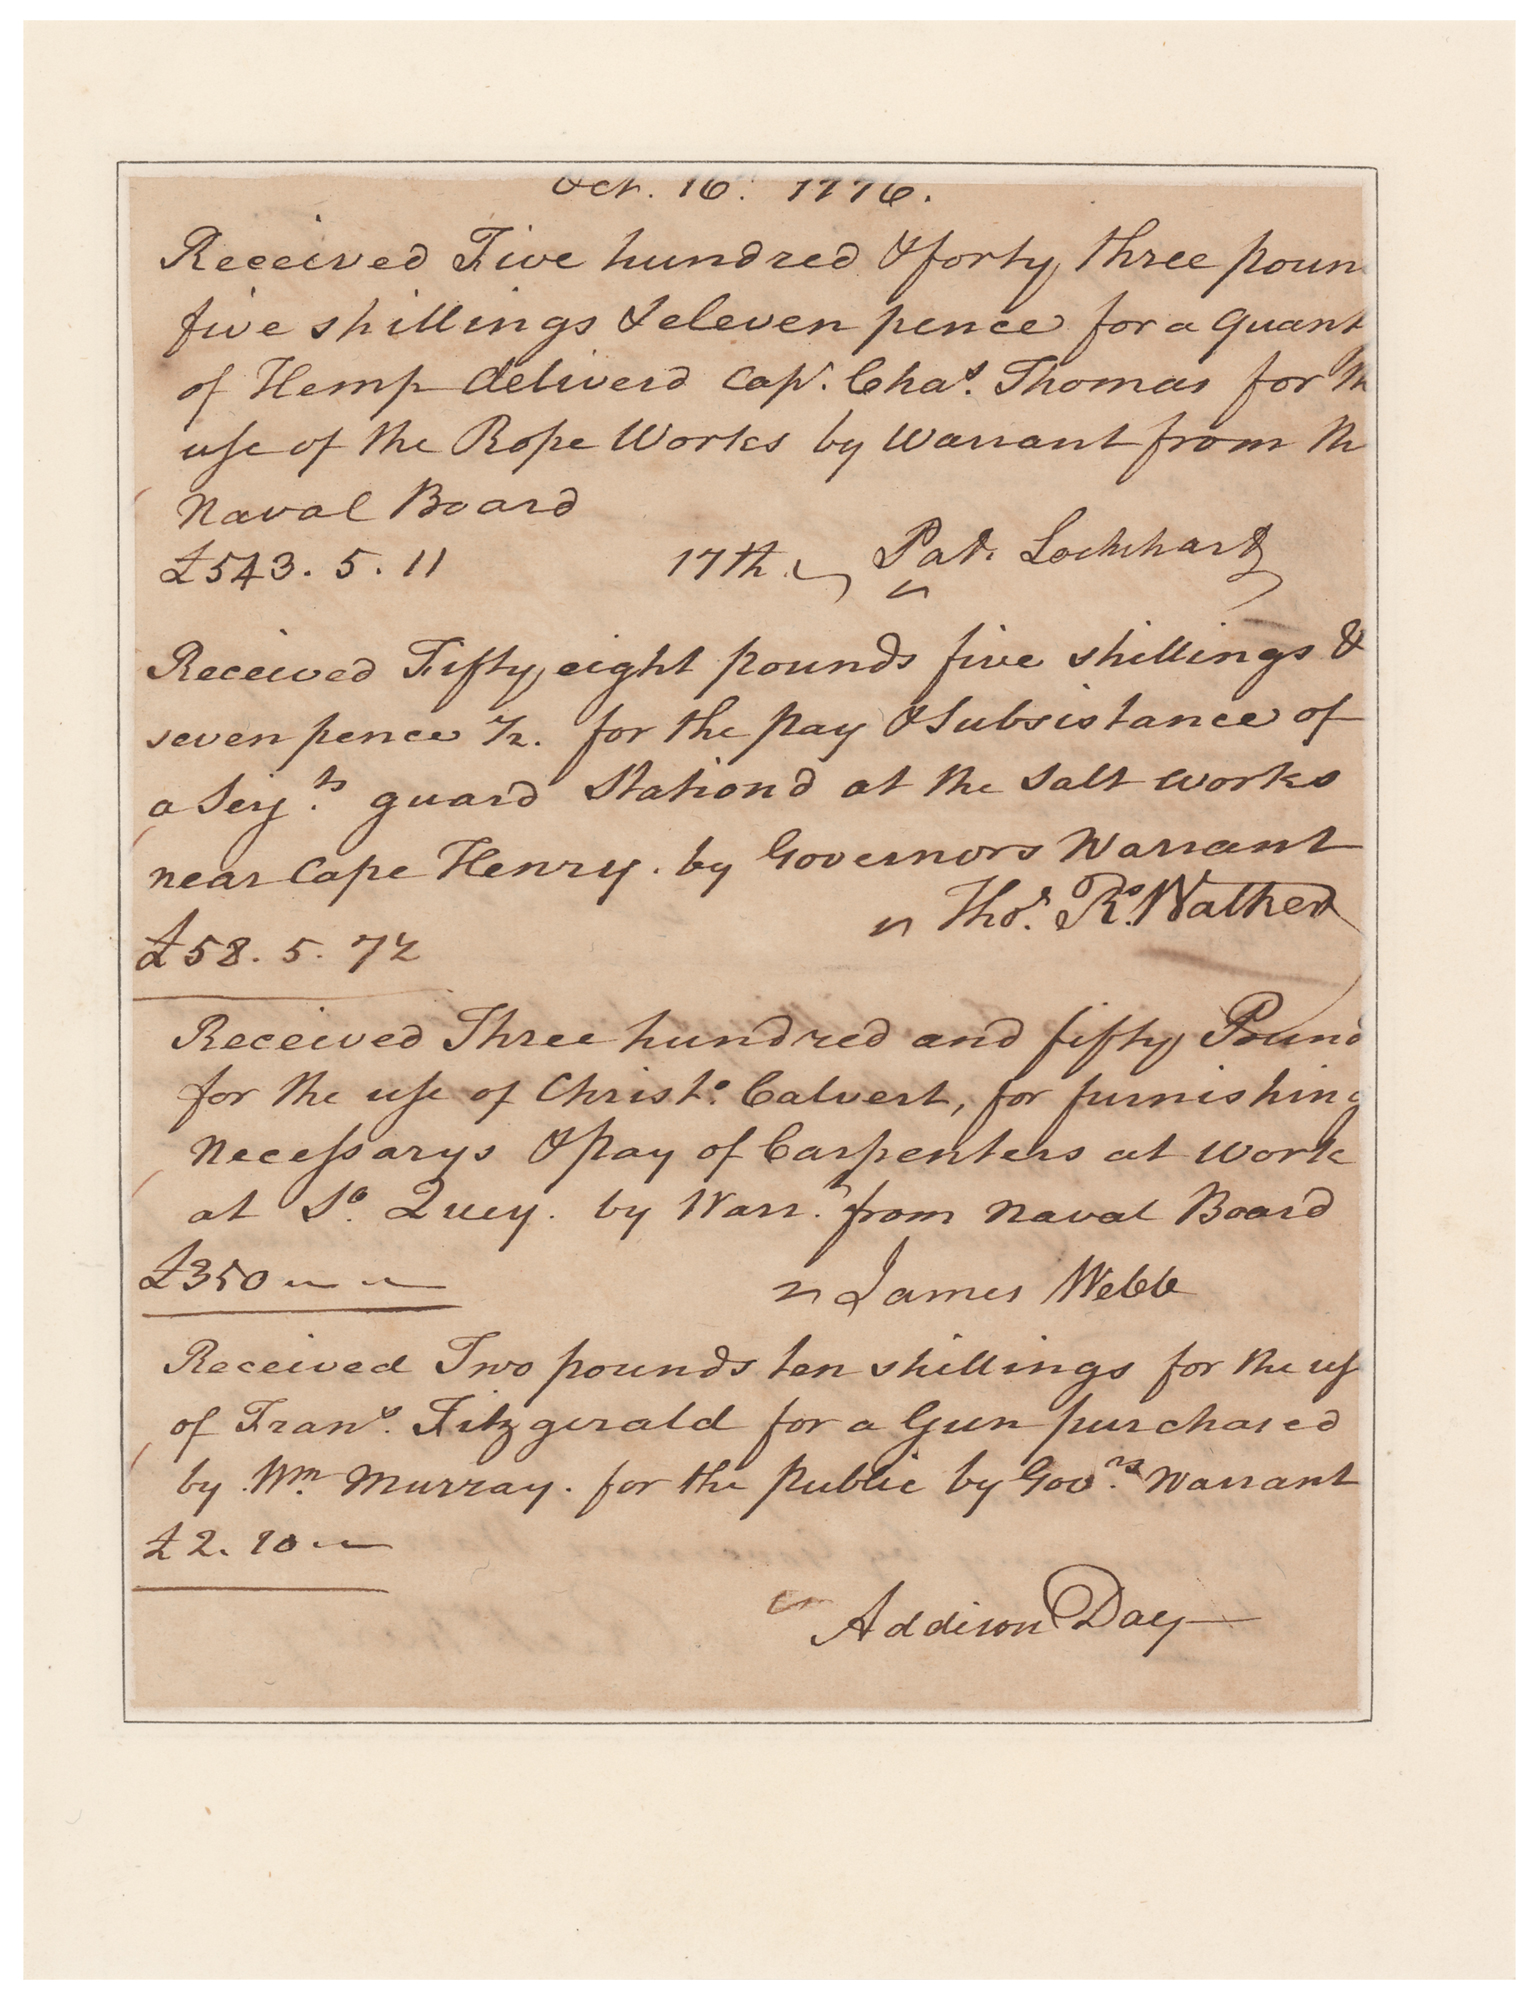 Oct. 16. 1776.
Received Five hundred & forty three poun
five shillings & eleven pence for a quant
of Hemp deliverd Capt. Chas. Thomas for th
use of the Rope Works by Warrant from th
Naval Board
£543. 5. 11 17th. Pat. Lockhart
Received Fifty eight pounds five shillings &
seven pence ½. for the pay & Subsistance of
a Serjts. guard Stationd at the Salt Works
near Cape Henry. by Governors Warrant
Thos. Rs. Walker
£58. 5. 7½
Received Three hundred and fifty Pound
for the use of Christo. Calvert, for furnishing
Necessarys & pay of Carpenters at Work
at So. Quey. by Warrt. from Naval Board
£350
James Webb
Received Two pounds ten shillings for the us
of Frans. Fitzgerald for a Gun purchased
by Wm. Murray. for the Public by Govrs. Warrant
£2. 10
Addison Day